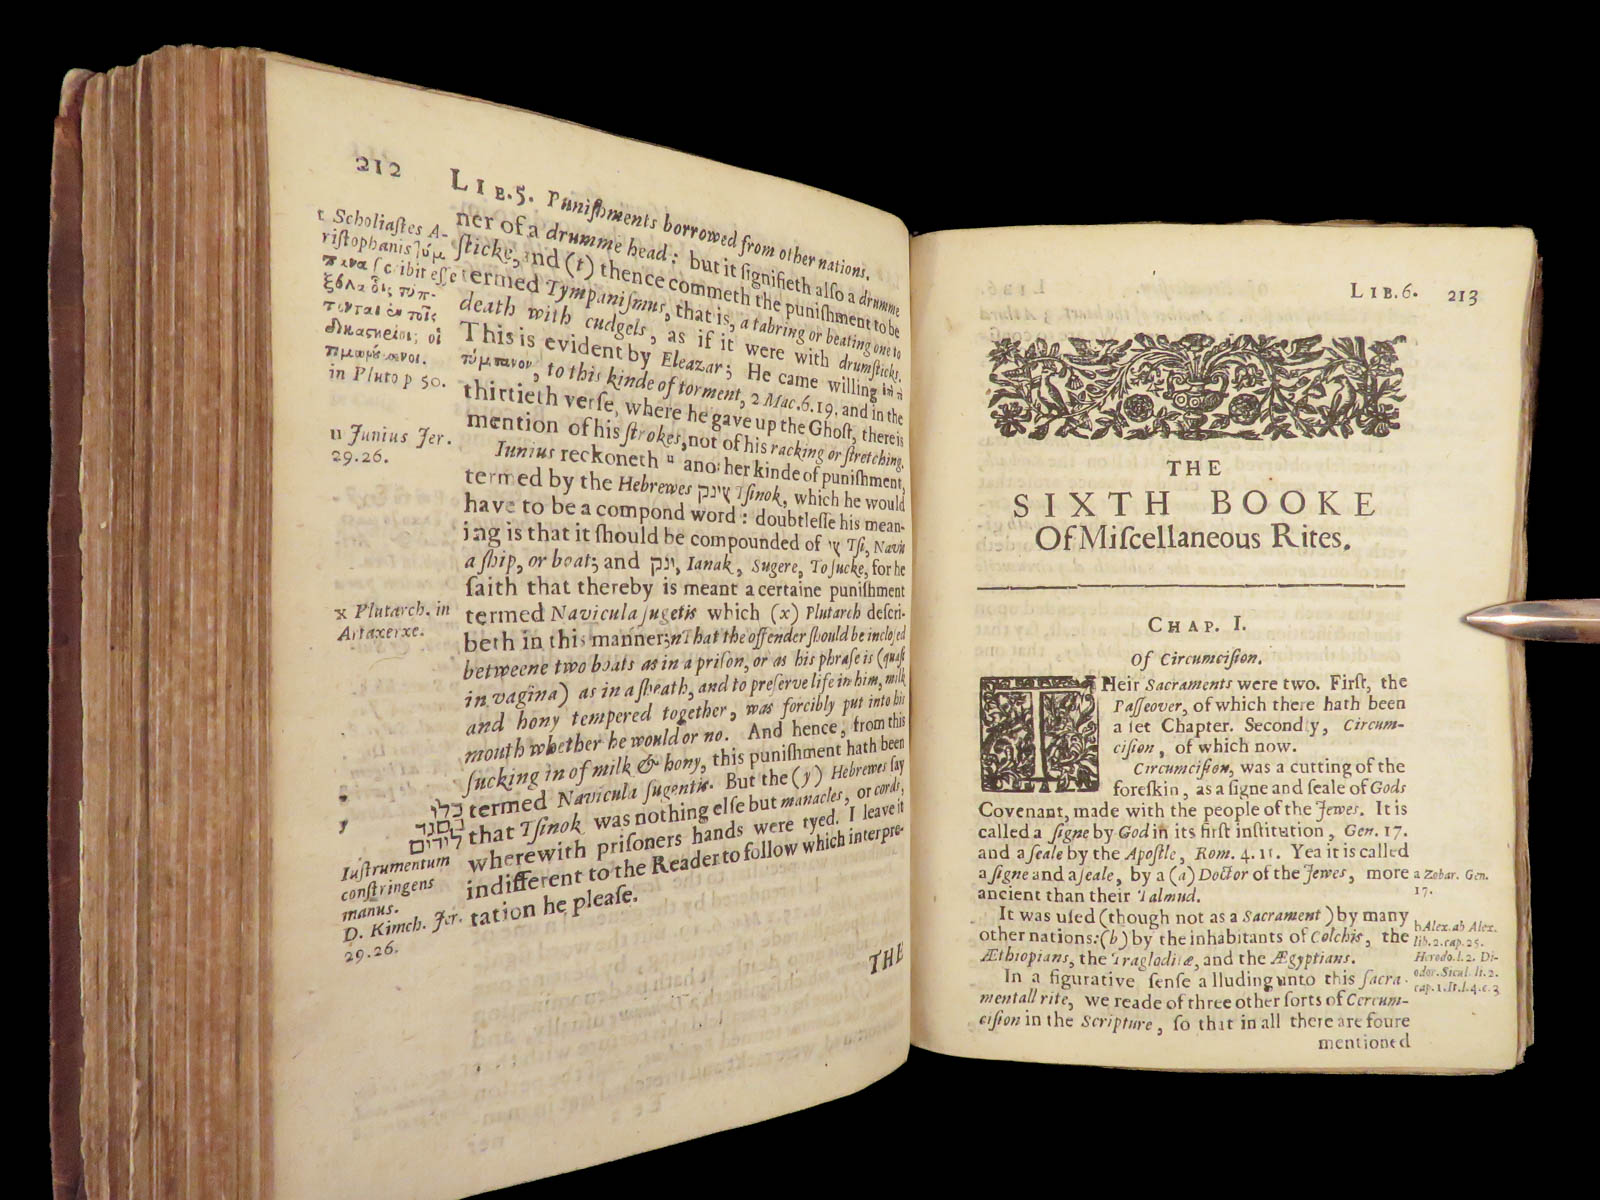 212
LIB.5. Puniſhments borrowed from other nations.
ner of a drumme head: but it ſignifieth alſo a drumme
ſticke, and (t) thence commeth the puniſhment to be
termed Tympaniſmus, that is, a tabring or beating one to
death with cudgels, as if it were with drumſticks.
This is evident by Eleazar; He came willing
τύμπανον, to this kinde of torment, 2 Mac.6.19. and in the
thirtieth verſe, where he gave up the Ghoſt, there is
mention of his ſtrokes, not of his racking or ſtretching.
Iunius reckoneth u ano her kinde of puniſhment,
termed by the Hebrewes צינק Tſinok, which he would
have to be a compond word: doubtleſſe his mean-
ing is that it ſhould be compounded of צי Tſi, Navis
a ſhip, or boat; and ינק, Ianak, Sugere, To ſucke, for he
ſaith that thereby is meant a certaine puniſhment
termed Navicula ſugetis which (x) Plutarch deſcri-
beth in this manner; That the offender ſhould be incloſed
betweene two boats as in a priſon, or as his phraſe is (quaſi
in vagina) as in a ſheath, and to preſerve life in him, milk
and hony tempered together, was forcibly put into his
mouth whether he would or no. And hence, from this
ſucking in of milk & hony, this puniſhment hath been
termed Navicula ſugentis. But the (y) Hebrewes ſay
that Tſinok was nothing elſe but manacles, or cords,
wherewith priſoners hands were tyed. I leave it
indifferent to the Reader to follow which interpre-
tation he pleaſe.
THE
t Scholiaſtes A-
riſtophanis
ſcribit eſſe
in Pluto p 50.
u Junius Jer.
29.26.
x Plutarch. in
Artaxerxe.
כלי
לידים
Iuſtrumentum
conſtringens
manus.
D. Kimch. Jer.
29.26.
LIB.6. 213
THE
SIXTH BOOKE
Of Miſcellaneous Rites.
CHAP. I.
Of Circumciſion.
THeir Sacraments were two. Firſt, the
Paſſeover, of which there hath been
a ſet Chapter. Secondly, Circum-
ciſion, of which now.
Circumciſion, was a cutting of the
foreſkin, as a ſigne and ſeale of Gods
Covenant, made with the people of the Jewes. It is
called a ſigne by God in its firſt inſtitution, Gen. 17.
and a ſeale by the Apoſtle, Rom. 4.11. Yea it is called
a ſigne and a ſeale, by a (a) Doctor of the Jewes, more
ancient than their Talmud.
It was uſed (though not as a Sacrament) by many
other nations: (b) by the inhabitants of Colchis, the
Æthiopians, the Traglodiræ, and the Ægyptians.
In a figurative ſenſe alluding unto this ſacra-
mentall rite, we reade of three other ſorts of Cercum-
ciſion in the Scripture, ſo that in all there are foure
mentioned
a Zohar. Gen.
17.
b Alex. ab Alex.
lib.2. cap.25.
Herodo. l.2. Di-
odor. Sicul. li.2.
cap.1. It. l.4. c.3